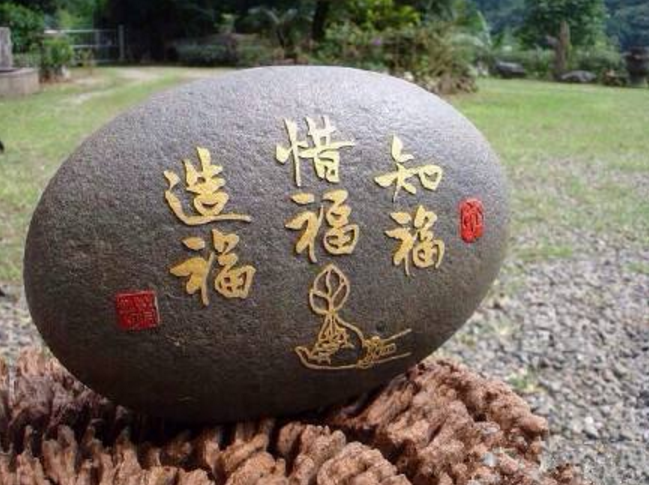 知福
惜福
造福